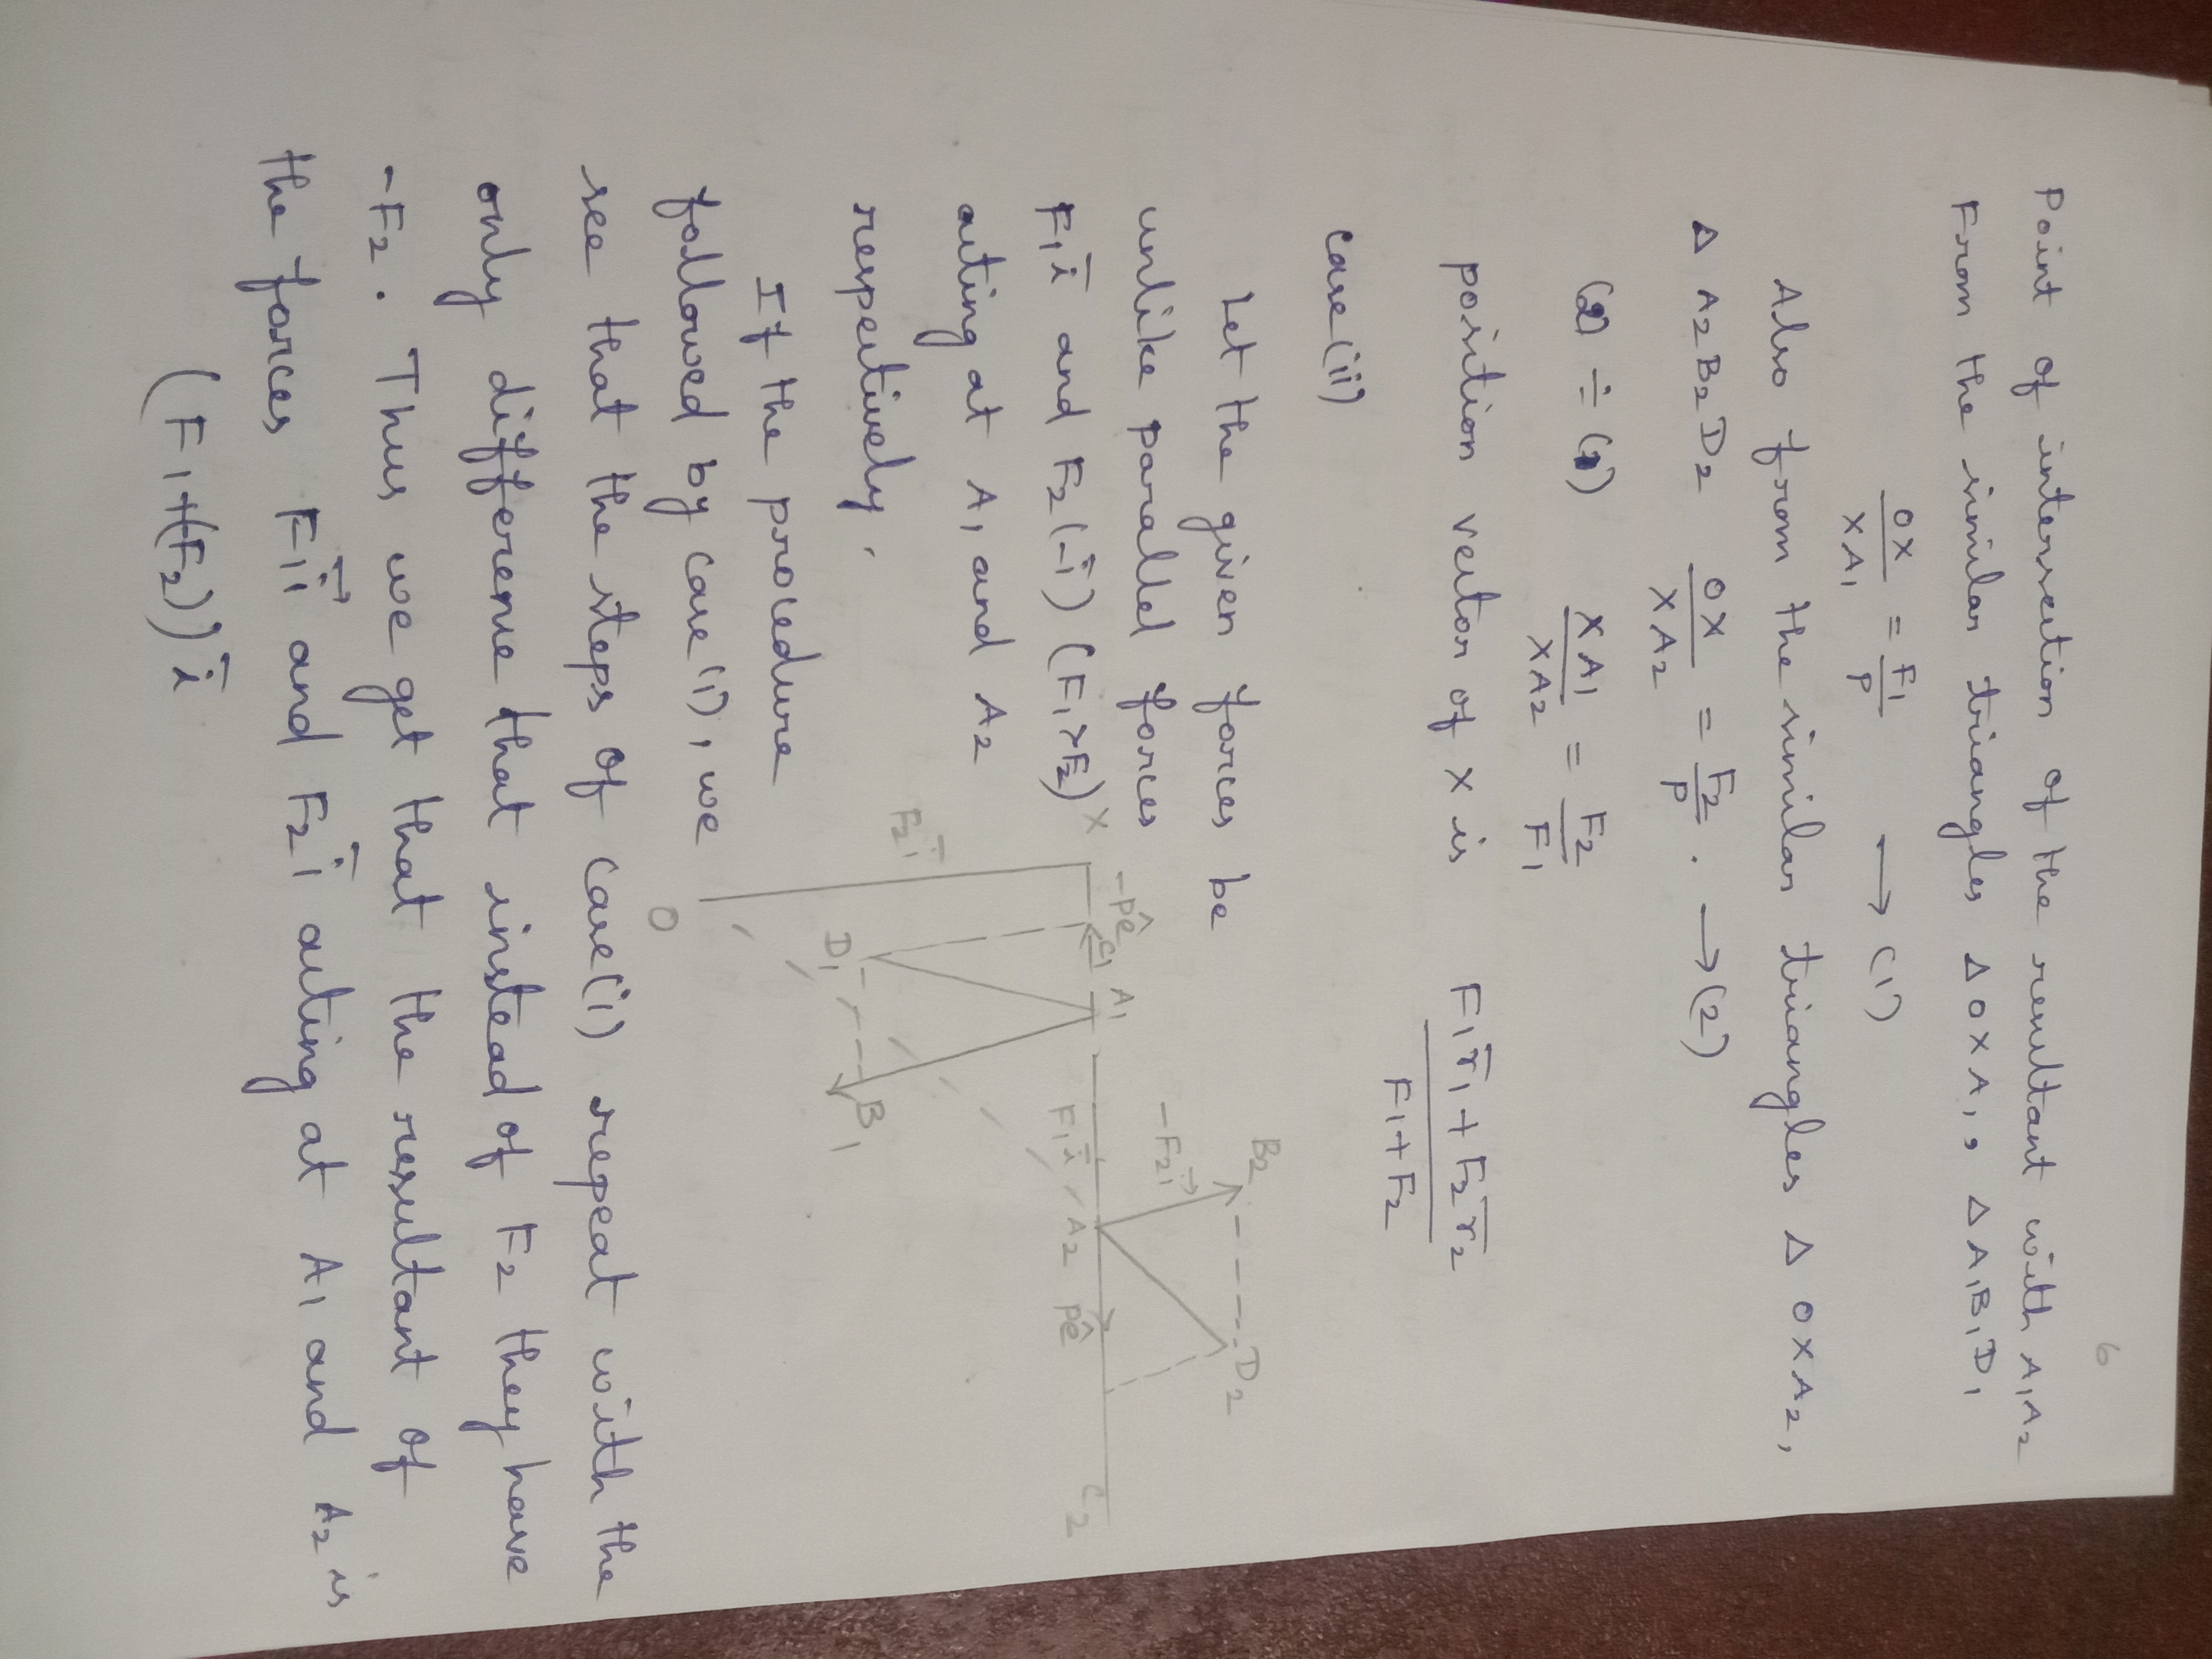 6
Point of intersection of the resultant with A₁A₂
From the similar triangles Δ OXA₁, Δ A₁B₁D₁
OX/XA₁ = F₁/P → (1)
Also from the similar triangles Δ OXA₂,
Δ A₂B₂D₂ OX/XA₂ = F₂/P. → (2)
(2) ÷ (1) XA₁/XA₂ = F₂/F₁
position vector of X is (F₁r̄₁ + F₂r̄₂)/(F₁+F₂)
case (ii)
Let the given forces be
unlike parallel forces
F₁ī and F₂(-ī) (F₁>F₂)
acting at A₁ and A₂
respectively.
If the procedure
followed by case (i), we
see that the steps of case (i) repeat with the
only difference that instead of F₂ they have
-F₂. Thus we get that the resultant of
the forces F₁ī and F₂ī acting at A₁ and A₂ is
(F₁+(F₂))ī
B₂
D₂
-F₂ī
X
-pê
C₁
A₁
F₁ī
A₂
pê
C₂
F₂ī
D₁
B₁
O